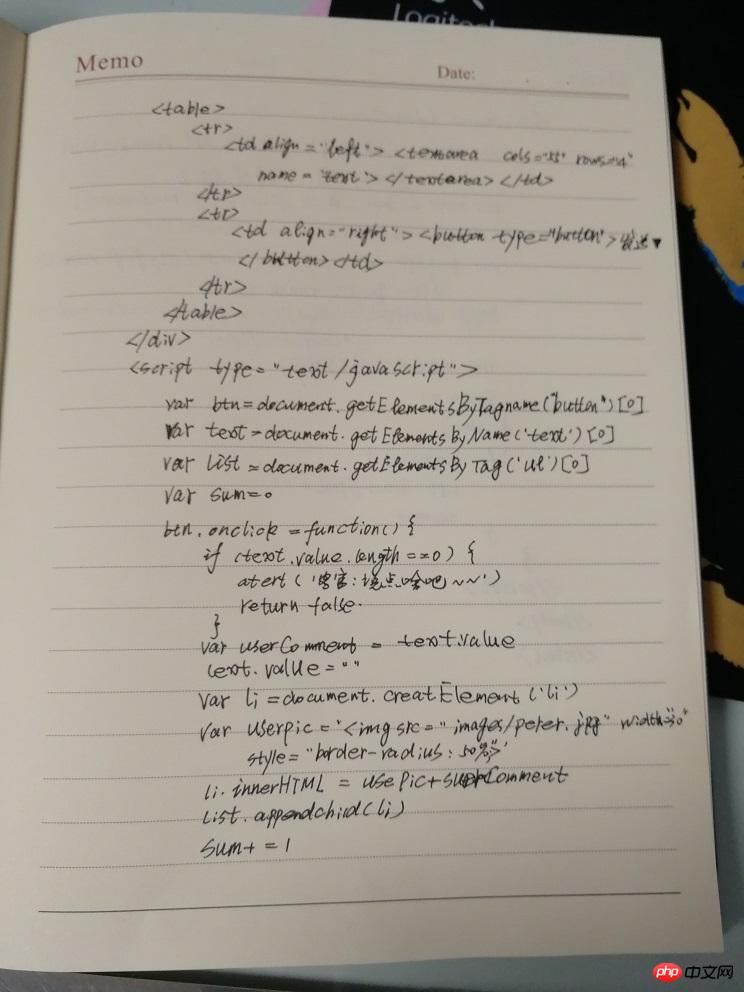 Logitech
Memo
Date:
<table>
<tr>
<td align="left"> <textarea cols="55" rows="4"
name="text"></textarea></td>
</tr>
<tr>
<td align="right"><button type="button">发送
</button></td>
</tr>
</table>
</div>
<script type="text/javascript">
var btn=document.getElementsByTagname("button")[0]
var text=document.getElements By Name('text')[0]
var list=document.getElementsBy Tag('ul')[0]
var sum=0
btn.onclick=function() {
if (text.value.length==0) {
atert('客官:说点啥吧~~')
return false.
}
var userComment = text.value
text.value=""
var li=document.creatElement('li')
var userpic='<img src="images/peter.jpg" width="30"
style="border-radius:50%;>'
li.innerHTML = usePic+userComment
list.appendchild(li)
sum+=1
php 中文网